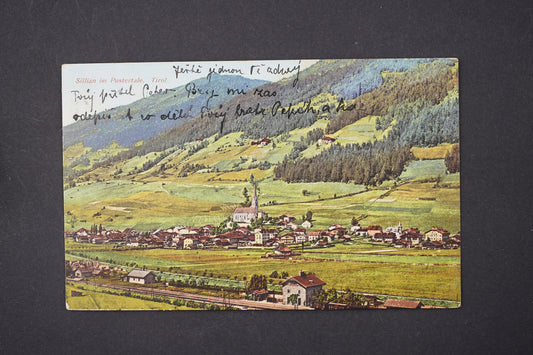 Sillian im Pustertale, Tirol
Ještě jednou Ti
Tvůj přítel Peter. Brzy mi zas
odepiš a co dělá Tvůj bratr Pepík a